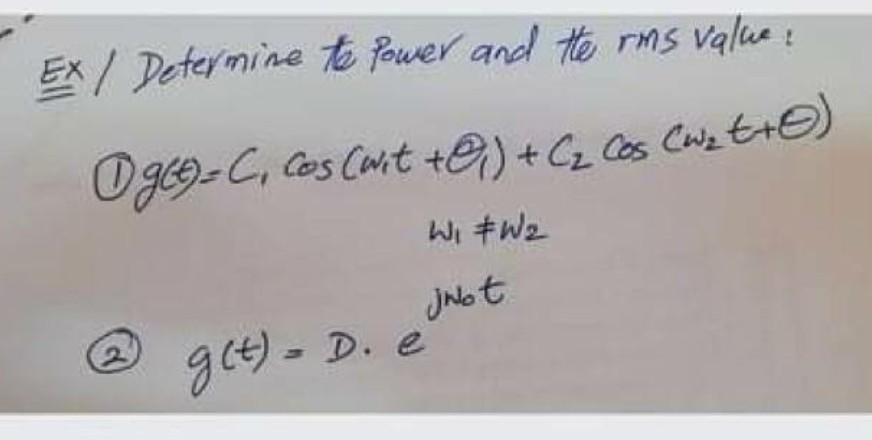 EX / Determine te Power and tte rms value :
① g(t) = C₁ Cos (w₁t + θ₁) + C₂ Cos (w₂t + θ)
w₁ ≠ w₂
② g(t) = D. e^jw₀t